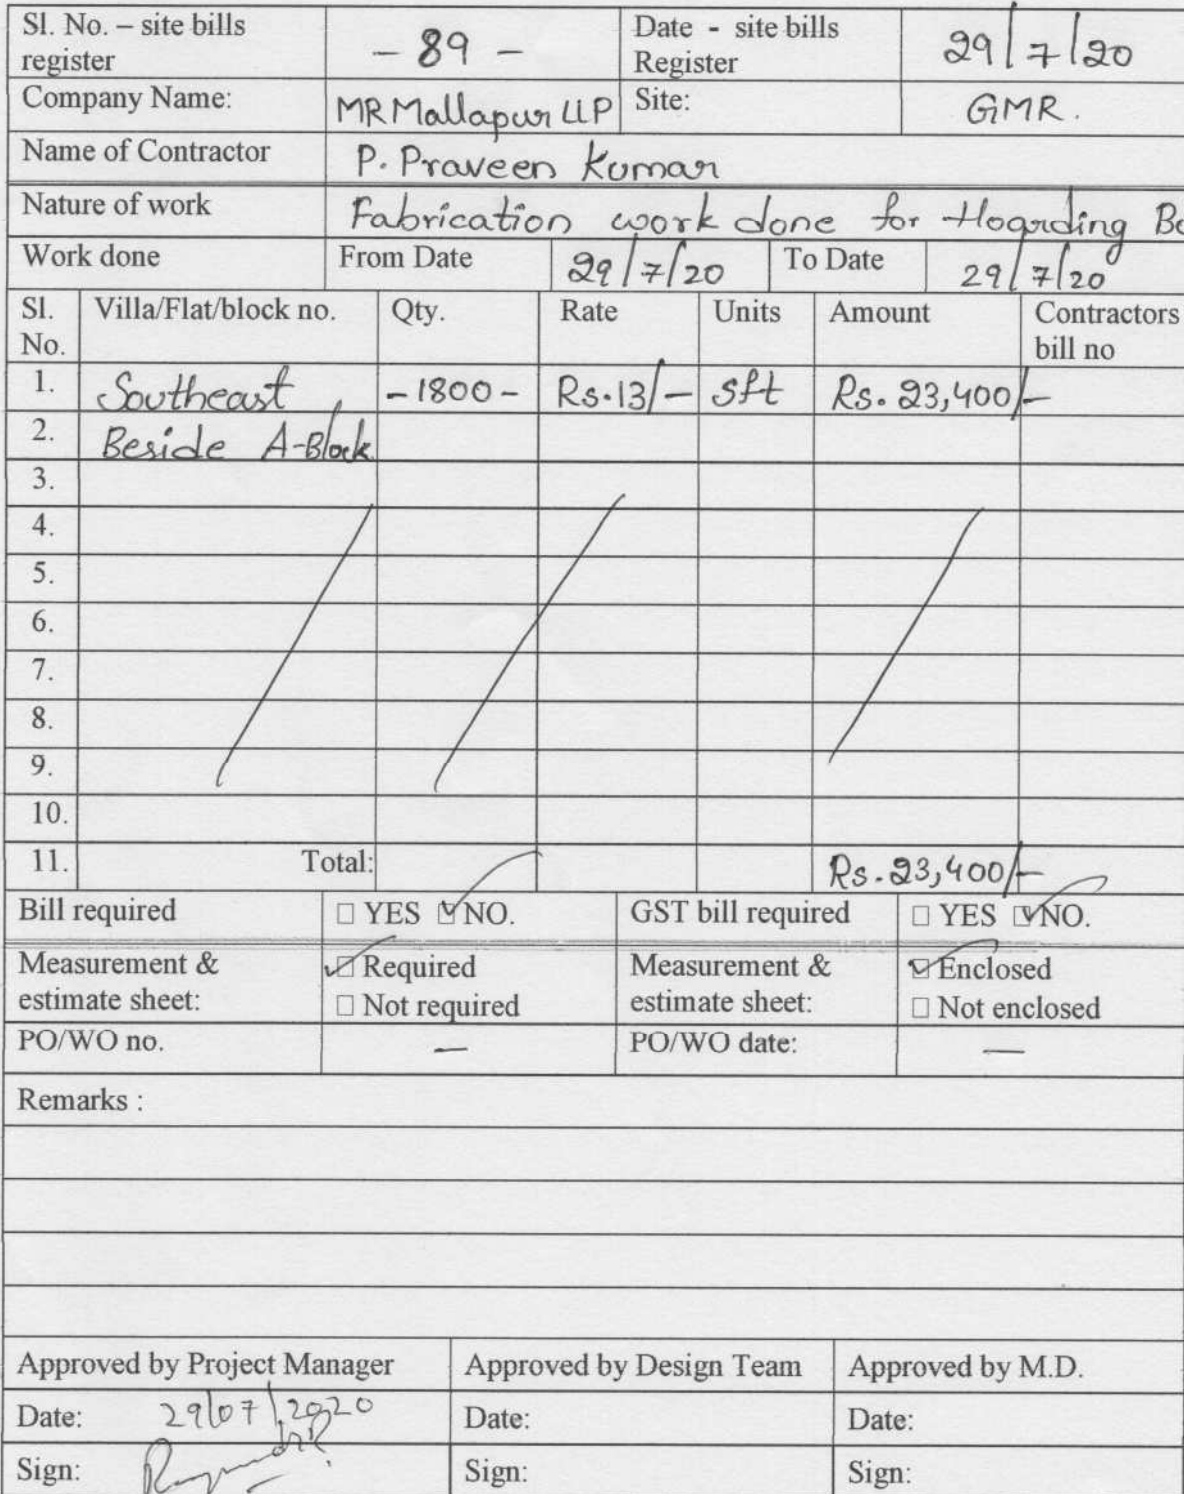 Sl. No. – site bills register - 89 - Date - site bills Register 29/7/20
Company Name: MR Mallapur LLP Site: GMR.
Name of Contractor P. Praveen Kumar
Nature of work Fabrication work done for Hoarding
Work done From Date 29/7/20 To Date 29/7/20
Sl. No. Villa/Flat/block no. Qty. Rate Units Amount Contractors bill no
1. Southeast -1800- Rs.13/- sft Rs. 23,400/-
2. Beside A-Block
3.
4.
5.
6.
7.
8.
9.
10.
11. Total: Rs. 23,400/-
Bill required □ YES ☑ NO. GST bill required □ YES ☑ NO.
Measurement & estimate sheet: ☑ Required Measurement & estimate sheet: ☑ Enclosed
□ Not required □ Not enclosed
PO/WO no. — PO/WO date: —
Remarks :
Approved by Project Manager Approved by Design Team Approved by M.D.
Date: 29/07/2020 Date: Date:
Sign: Sign: Sign: